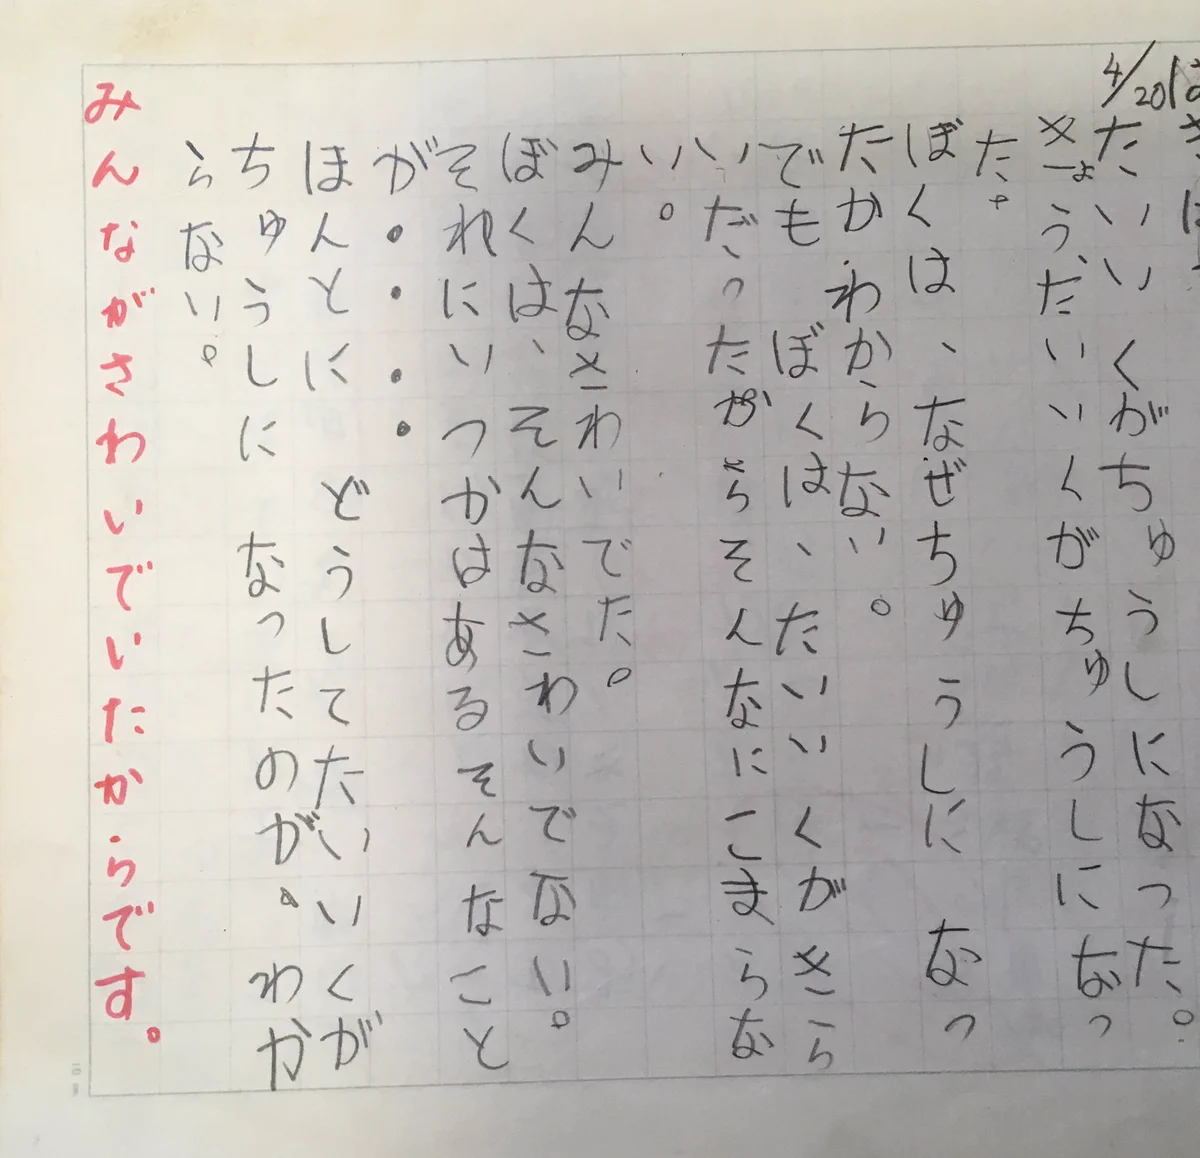 4/20
たいいくがちゅうしになった。
きょう、たいいくがちゅうしになっ
た。
ぼくは、なぜちゅうしになっ
たかわからない。
でもぼくは、たいいくがきら
いだったからそんなにこまらな
い。
みんなさわいでた。
ぼくは、そんなさわいでない。
それにいつかはあるそんなこと
が・・・・
ほんとにどうしてたいいくが
ちゅうしになったのが、わか
らない。
みんながさわいでいたからです。